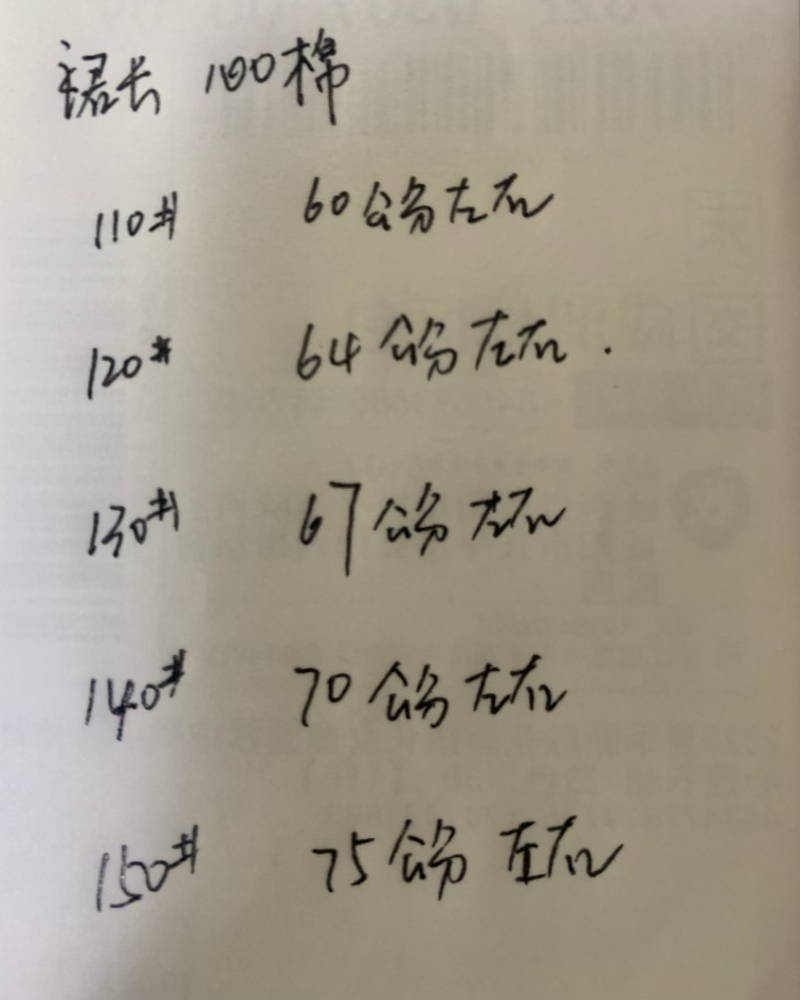 裙长 100棉
110# 60公分左右
120# 64公分左右.
130# 67公分左右
140# 70公分左右
150# 75公分左右